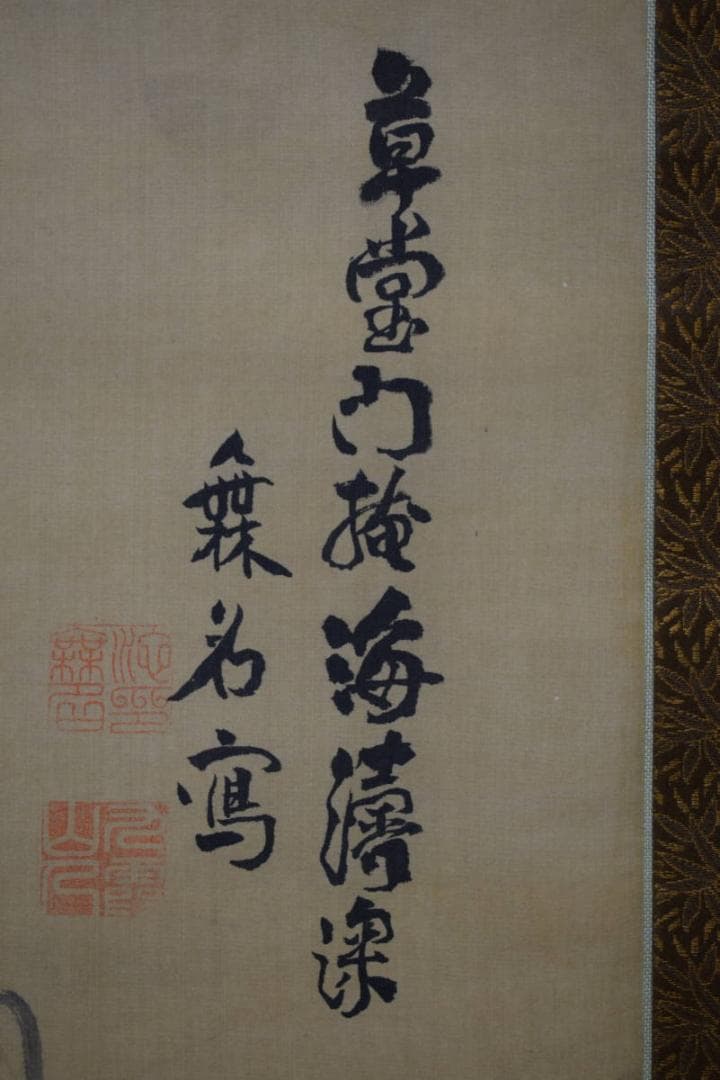 草堂門掩海濤深
無名寫